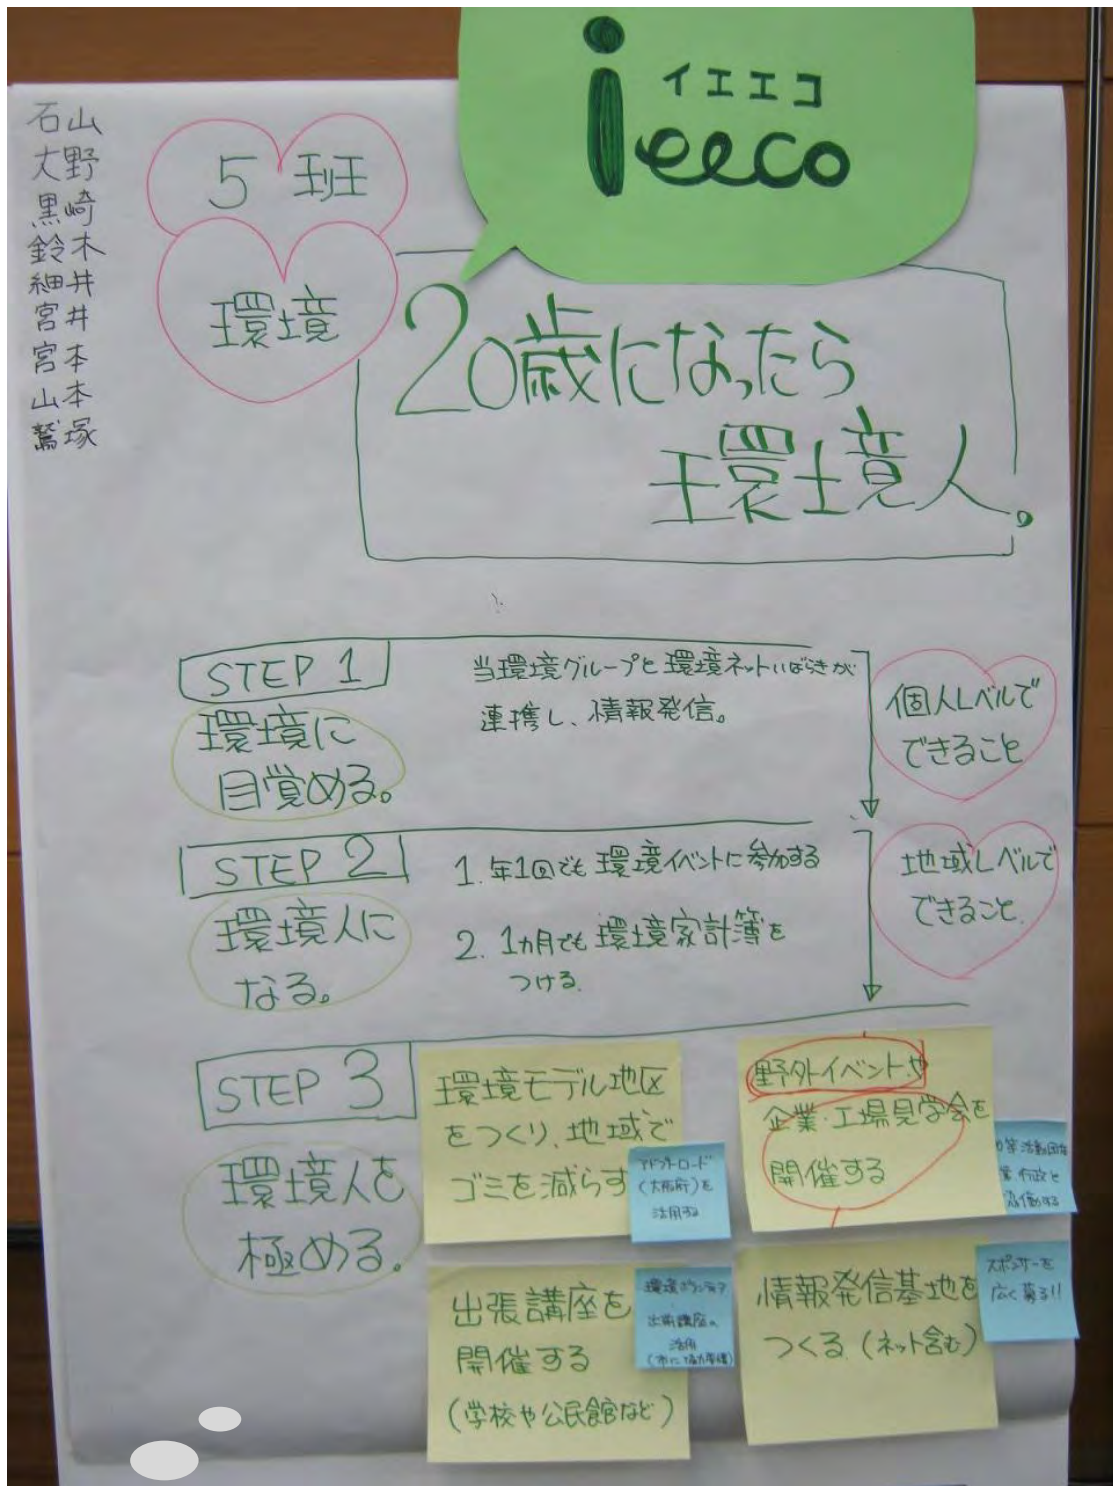 石山
大野
黒崎
鈴木
細井
宮井
宮本
山本
鷲塚
5班
環境
イエエコ
ieeco
20歳になったら
環境人。
STEP 1
環境に
目覚める。
当環境グループと環境ネットいばらきが
連携し、情報発信。
個人レベルで
できること
STEP 2
環境人に
なる。
1. 年1回でも環境イベントに参加する
2. 1ヵ月でも環境家計簿を
つける。
地域レベルで
できること。
STEP 3
環境人を
極める。
環境モデル地区
をつくり、地域で
ゴミを減らす
アドプトロード
(大阪府)を
活用する
野外イベントや
企業・工場見学会を
開催する
行政と
出張講座を
開催する
(学校や公民館など)
環境ボランティア
出前講座の
活用
情報発信基地を
つくる(ネット含む)
スポンサーを
広く募る!!